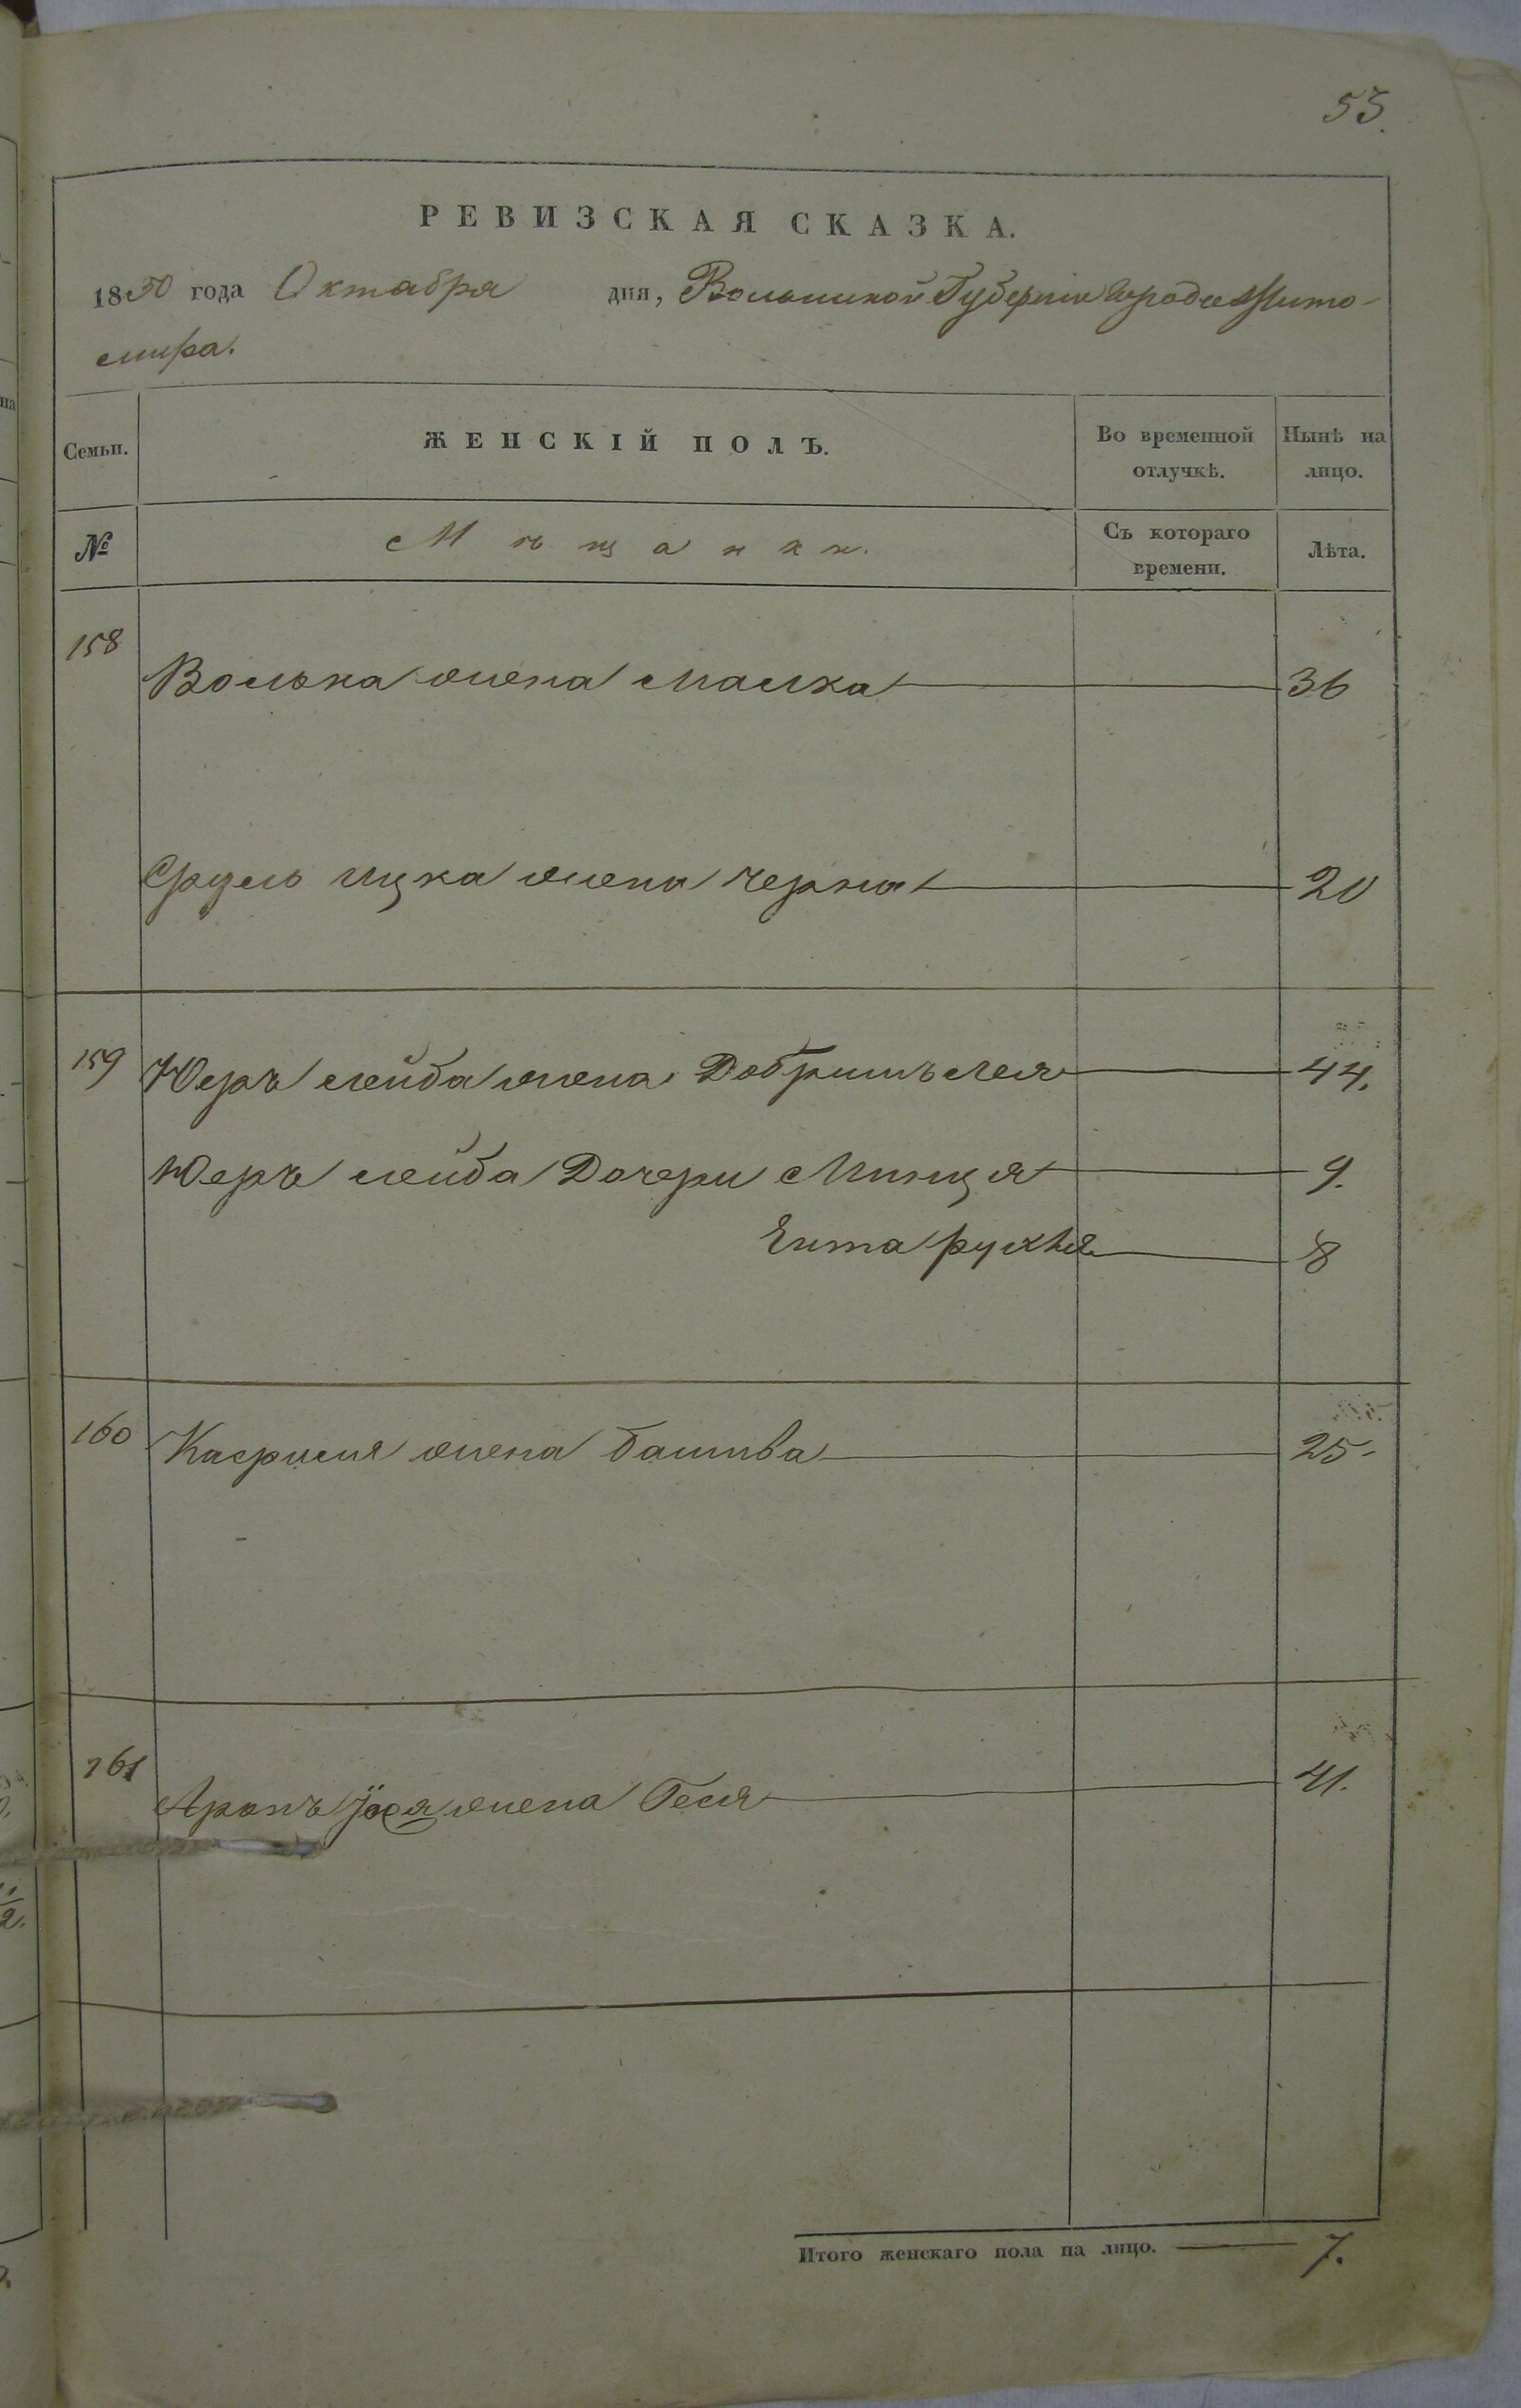 53.
РЕВИЗСКАЯ СКАЗКА.
1850 года Октября дня, Волынской Губернiи города Жито-
мира.
Семьи. ЖЕНСКIЙ ПОЛЪ. Во временной отлучкѣ. Нынѣ на лицо.
№ Мѣщанки. Съ котораго времени. Лѣта.
158
Волька жена Малка 36
Сруль Ицка жена Черна 20
159 Юеръ лейба жена Добришълея 44.
Юеръ лейба Дочери Минця 9.
Ента рухля 8
160 Касриля жена башива 25
161
Аронъ жена Геся 41.
Итого женскаго пола на лицо. 7.